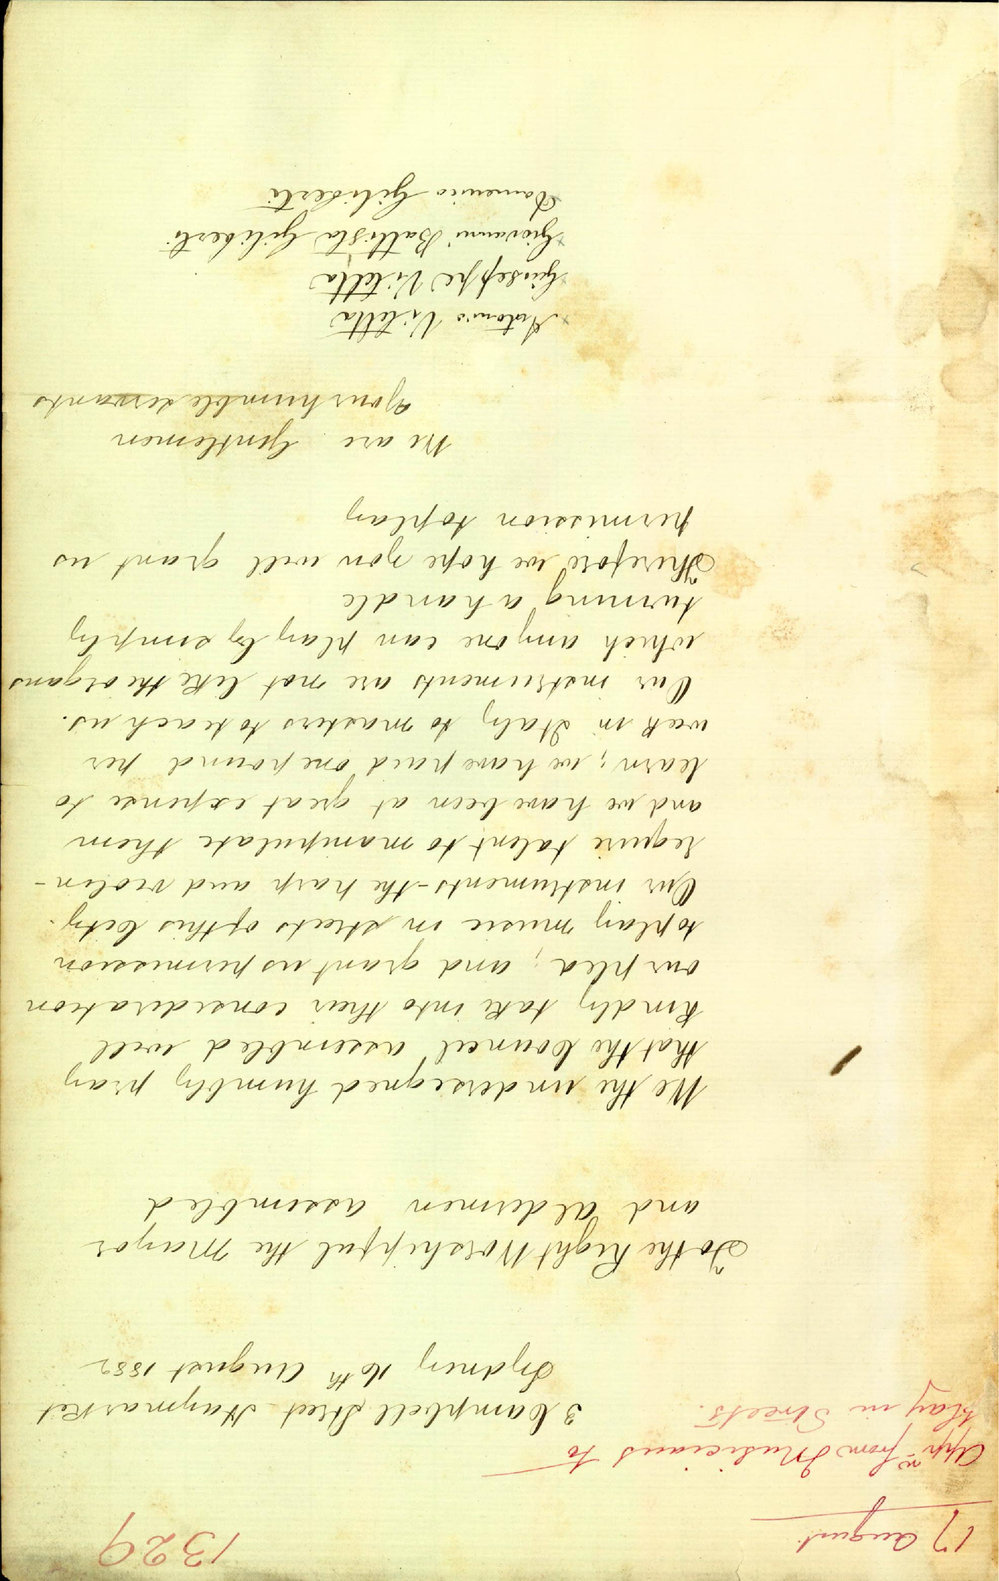 1329
17 August
Appn from Musicians to
play in Streets.
3 Campbell Street Haymarket
Sydney 16th August 1882
To the Right Worshipful the Mayor
and aldermen assembled
We the undersigned humbly pray
that the Council assembled will
kindly take into their consideration
our plea; and grant us permission
to play music in streets of this City.
Our instruments - the harp and violin -
require talent to manipulate them
and we have been at great expense to
learn; we have paid one pound per
week in Italy to masters to teach us.
Our instruments are not like the organs
which anyone can play by simply
turning a handle
Therefore we hope you will grant us
permission to play
We are Gentlemen
Your humble servants
Antonio Vitetta
Giuseppe Vitetta
Giovanni Battista Giliberti
Domenico Giliberti